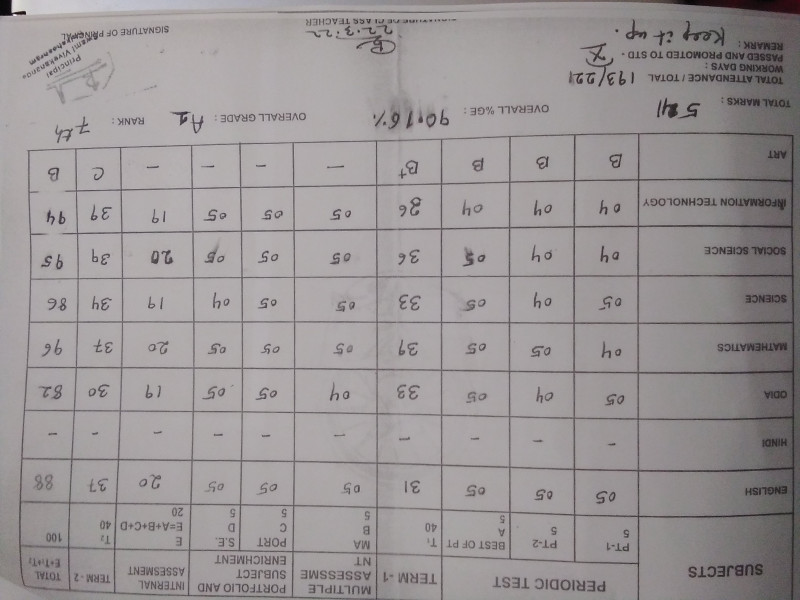 SUBJECTS PERIODIC TEST TERM - 1 MULTIPLE ASSESSME NT PORTFOLIO AND SUBJECT ENRICHMENT INTERNAL ASSESSMENT TERM - 2 TOTAL E+T₁+T₂
PT-1 PT-2 BEST OF PT T₁ MA PORT S.E. E T₂ 100
5 5 A 40 B C D E=A+B+C+D 40
5 5 5 5 20
ENGLISH 05 05 05 31 05 05 05 20 37 88
HINDI - - - - - - - - - -
ODIA 05 04 05 33 04 05 05 19 30 82
MATHEMATICS 04 05 05 39 05 05 05 20 37 96
SCIENCE 05 04 05 33 05 05 04 19 34 86
SOCIAL SCIENCE 04 04 05 36 05 05 05 20 39 95
INFORMATION TECHNOLOGY 04 04 04 36 05 05 05 19 39 94
ART B B B B+ - - - - C B
TOTAL MARKS : 541 OVERALL %GE : 90.16% OVERALL GRADE : A1 RANK : 7th
TOTAL ATTENDANCE / TOTAL WORKING DAYS : 193/221
PASSED AND PROMOTED TO STD - X
REMARK : Keep it up.
22.3.22
Principal
Swami Vivekananda
SIGNATURE OF CLASS TEACHER SIGNATURE OF PRINCIPAL